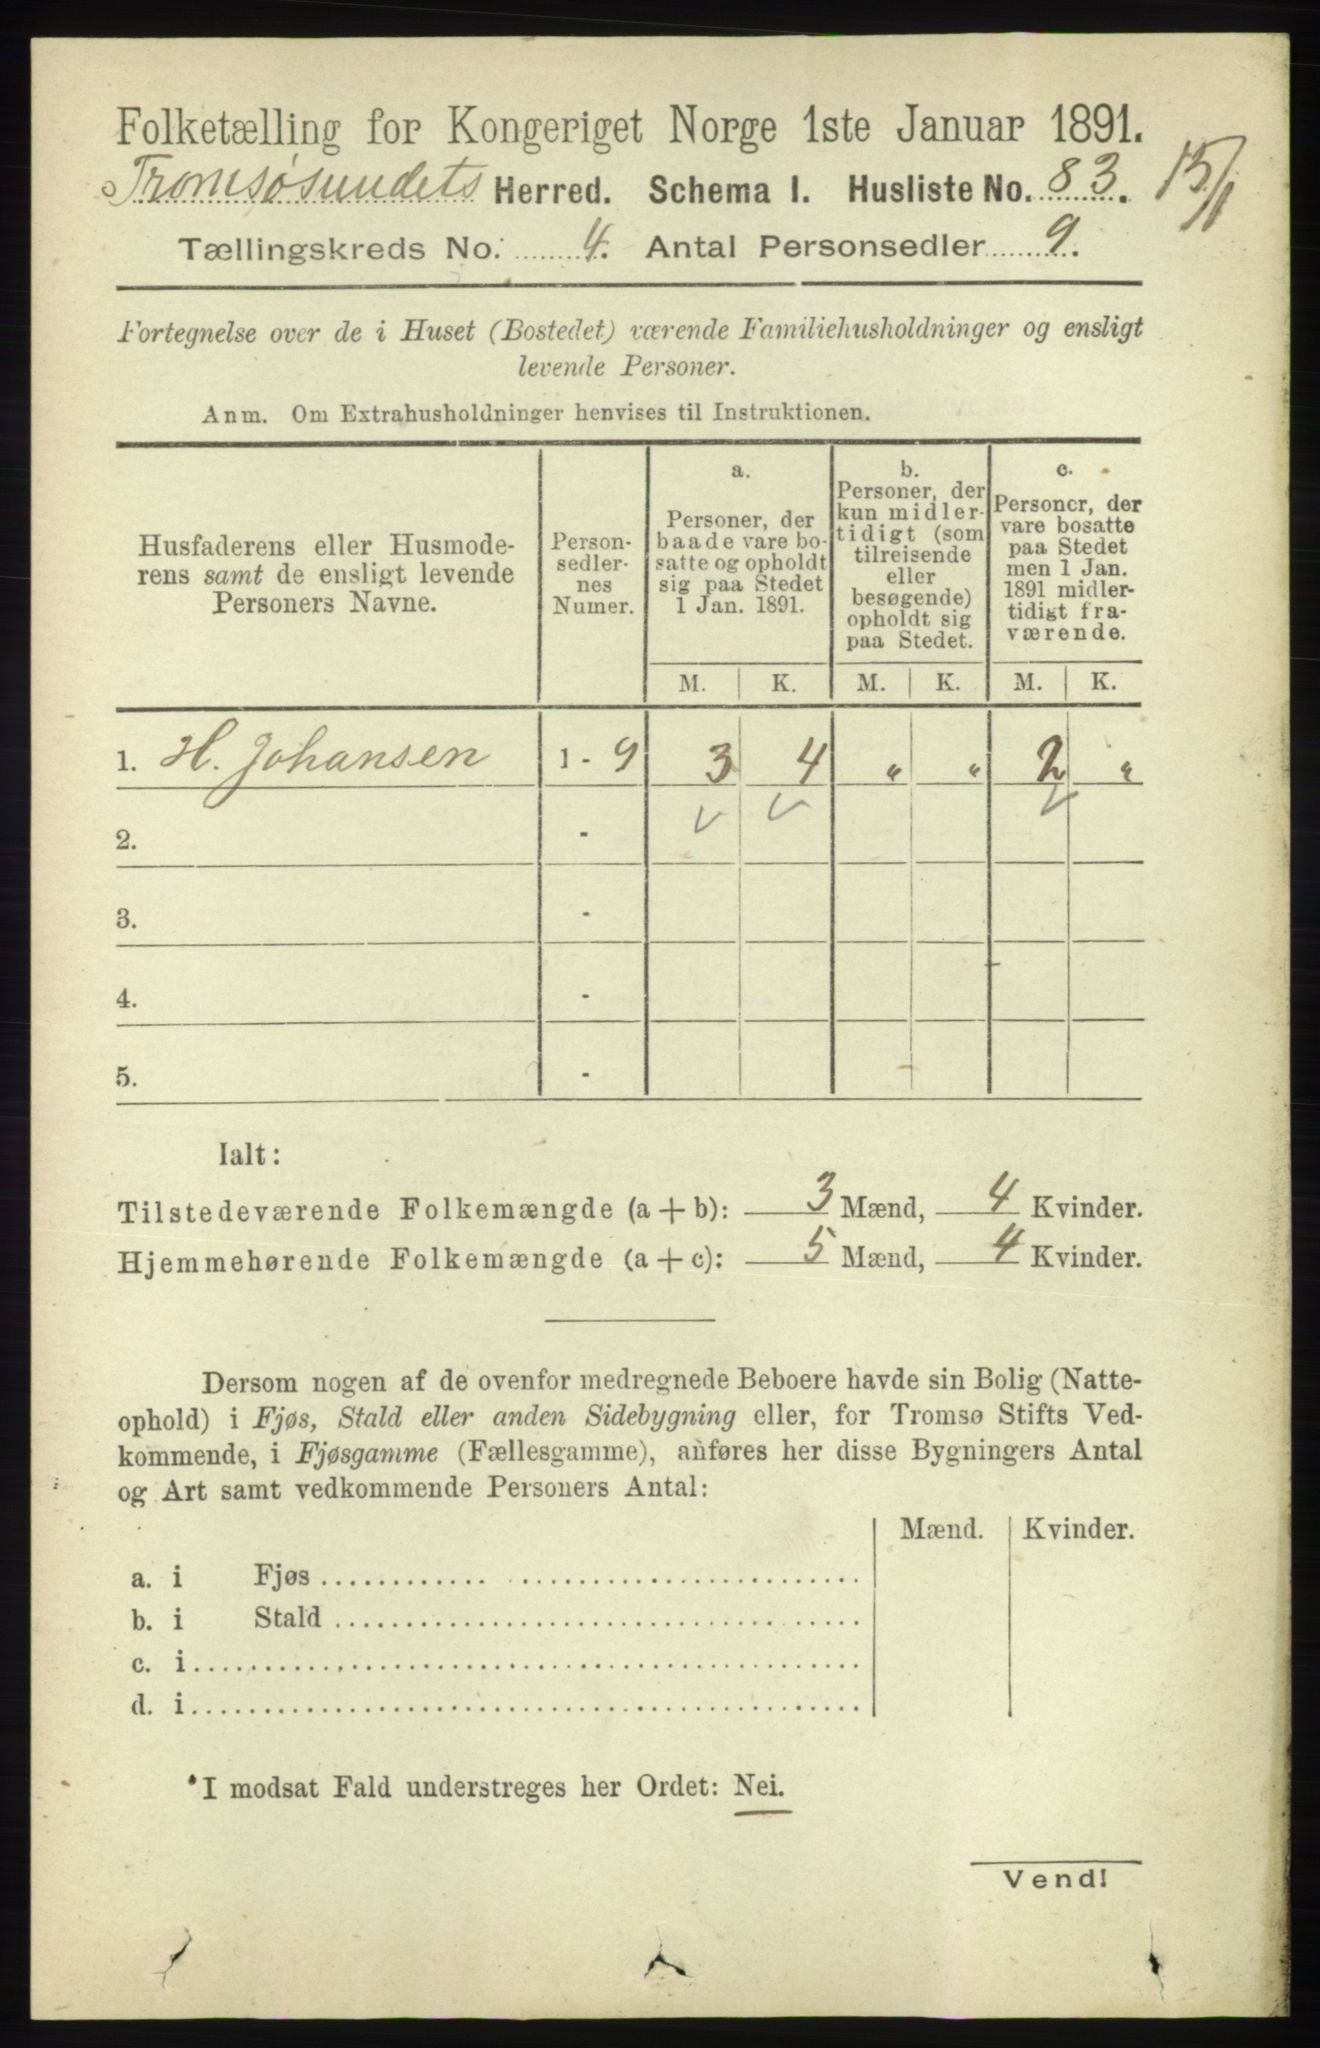 Folketælling for Kongeriget Norge 1ste Januar 1891.
Tromsøsundets Herred. Schema I. Husliste No. 83. 15/1
Tællingskreds No. 4. Antal Personsedler 9.
Fortegnelse over de i Huset (Bostedet) værende Familiehusholdninger og ensligt
levende Personer.
Anm. Om Extrahusholdninger henvises til Instruktionen.
Husfaderens eller Husmode-
rens samt de ensligt levende
Personers Navne.
Person-
sedler-
nes
Numer.
a.
Personer, der
baade vare bo-
satte og opholdt
sig paa Stedet
1 Jan. 1891.
b.
Personer, der
kun midler-
tidigt (som
tilreisende
eller
besøgende)
opholdt sig
paa Stedet.
c.
Personer, der
vare bosatte
paa Stedet
men 1 Jan.
1891 midler-
tidigt fra-
værende.
M. K. M. K. M. K.
1. H. Johansen 1 - 9 3 4 " " 2 "
2. -
3. -
4. -
5. -
Ialt:
Tilstedeværende Folkemængde (a + b): 3 Mænd, 4 Kvinder.
Hjemmehørende Folkemængde (a + c): 5 Mænd, 4 Kvinder.
Dersom nogen af de ovenfor medregnede Beboere havde sin Bolig (Natte-
ophold) i Fjøs, Stald eller anden Sidebygning eller, for Tromsø Stifts Ved-
kommende, i Fjøsgamme (Fællesgamme), anføres her disse Bygningers Antal
og Art samt vedkommende Personers Antal:
Mænd. Kvinder.
a. i Fjøs
b. i Stald
c. i
d. i
I modsat Fald understreges her Ordet: Nei.
Vend!